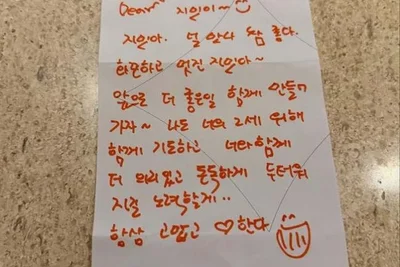 Dear 지인이~
지인아. 널 알아 참 좋다.
하고 멋진 지인아~
앞으로 더 좋은일 함께 만들어
가자~ 나도 너의 2세 위해
함께 기도하고 너와 함께
더 의리있고 돈독하게 두터워
지길 노력할게..
항상 고맙고 ♡한다